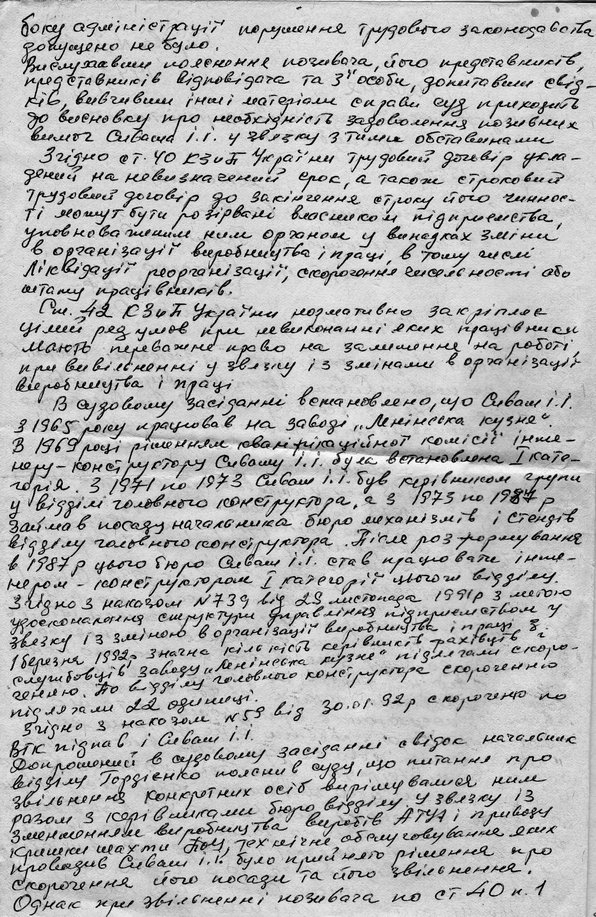 боку адміністрації порушення трудового законодавства
допущено не було.
Вислухавши пояснення позивача, його представників,
представників відповідача та 3ї особи, допитавши свід-
ків, вивчивши інші матеріали справи суд приходить
до висновку про необхідність задоволення позивних
вимог Сиваша І.І. у звязку з тими обставинами
Згідно ст. 40 КЗпП України трудовий договір укла-
дений на невизначений срок, а також строковий
трудовий договір до закінчення строку його чиннос-
ті можут бути розірвані власником підприємства,
уповноваженим ним органом у випадках зміни
в організації виробництва і праці, в тому числі
Ліквідації реорганізації, скорочення чисельності або
штату працівників.
Ст. 42 КЗпП України нормативно закріплює
цілий ряд умов при невиконанні яких працівники
мають переважне право на залишення на роботі,
при вивільненні у звязку із змінами в організації
виробництва і праці
В судовому засіданні встановлено, що Сиваш І.І.
з 1965 року працював на заводі „Ленінська кузня".
В 1969 році рішенням кваліфікаційної комісії інже-
неру-конструктору Сивашу І.І. була встановлена І кате-
горія. З 1971 по 1973 Сиваш І.І. був керівником групи
у відділі головного конструктора, а з 1973 по 1987 р
займав посаду начальника бюро механізмів і стендів
відділу головного конструктора. Після розформування
в 1987 р цього бюро Сиваш І.І. став працювати інже-
нером-конструктором І категорії цього ж відділу.
Згідно з наказом №739 від 29 листопада 1991р з метою
удосконалення структури управління підприємством у
звязку із зміною в організації виробництва і праці з
1 березня 1992р значна кількість керівників фахівців і
службовців заводу „Ленінська кузня" підлягали скоро-
ченню. По відділу головного конструктора скороченню
підлягали 22 одиниці.
Згідно з наказом №59 від 30.01.92р скороченю по
ВГК підпав і Сиваш І.І.
Допрошений в судовому засіданні свідок начальник
відділу Гордієнко пояснив суду, що питання про
звільнення конкретних осіб вирішувалися ним
разом з керівниками бюро відділу. У звязку із
зменшенням виробництва виробів і приводу
кришки шахти технічне обслуговування яких
проводив Сиваш І.І. було прийнято рішення про
скорочення його посади та його звільнення.
Однак при звільненні позивача по ст 40 п. 1